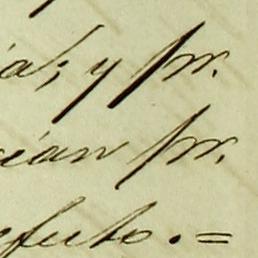 ia; y pr.
cian pr.
efecto. =